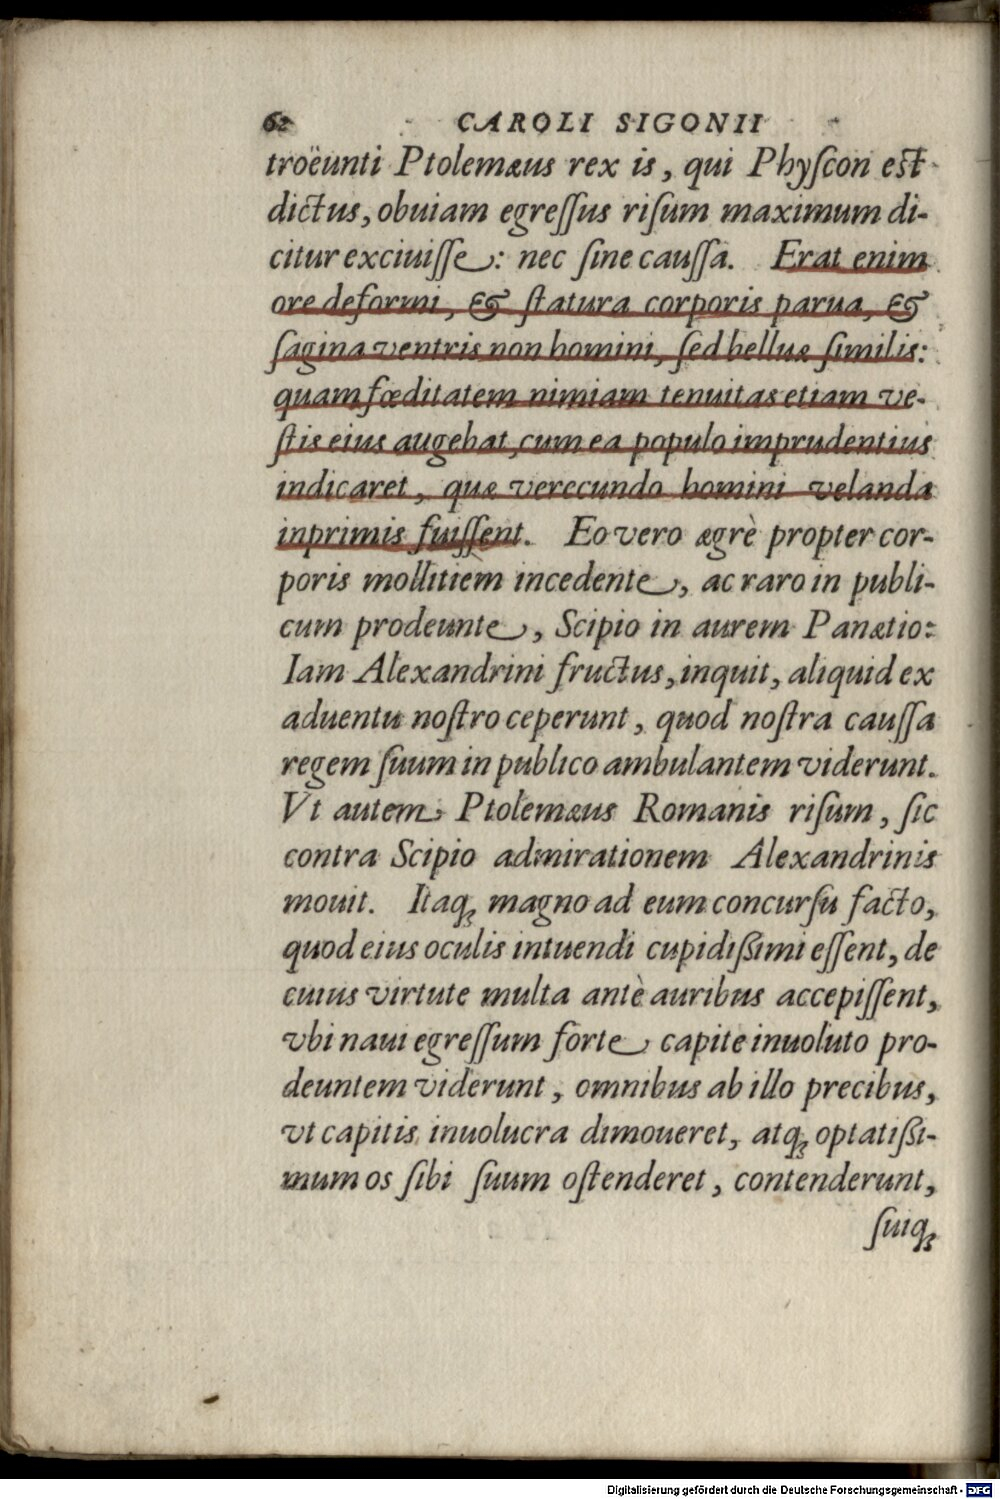 62 CAROLI SIGONII
troëunti Ptolemæus rex is, qui Phyſcon eſt
dictus, obuiam egreſſus riſum maximum di-
citur exciuiſſe: nec ſine cauſſa. Erat enim
ore deformi, & ſtatura corporis parua, &
ſagina ventris non homini, ſed belluæ ſimilis:
quam fœditatem nimiam tenuitas etiam ve-
ſtis eius augebat, cum ea populo imprudentius
indicaret, quæ verecundo homini velanda
inprimis fuiſſent. Eo vero ægrè propter cor-
poris mollitiem incedente, ac raro in publi-
cum prodeunte, Scipio in aurem Panætio:
Iam Alexandrini fructus, inquit, aliquid ex
aduentu noſtro ceperunt, quod noſtra cauſſa
regem ſuum in publico ambulantem viderunt.
Vt autem Ptolemæus Romanis riſum, ſic
contra Scipio admirationem Alexandrinis
mouit. Itaq; magno ad eum concurſu facto,
quod eius oculis intuendi cupidiſſimi eſſent, de
cuius virtute multa antè auribus accepiſſent,
vbi naui egreſſum forte capite inuoluto pro-
deuntem viderunt, omnibus ab illo precibus,
vt capitis inuolucra dimoueret, atq; optatiſſi-
mum os ſibi ſuum oſtenderet, contenderunt,
ſuiq;
Digitalisierung gefördert durch die Deutsche Forschungsgemeinschaft - DFG